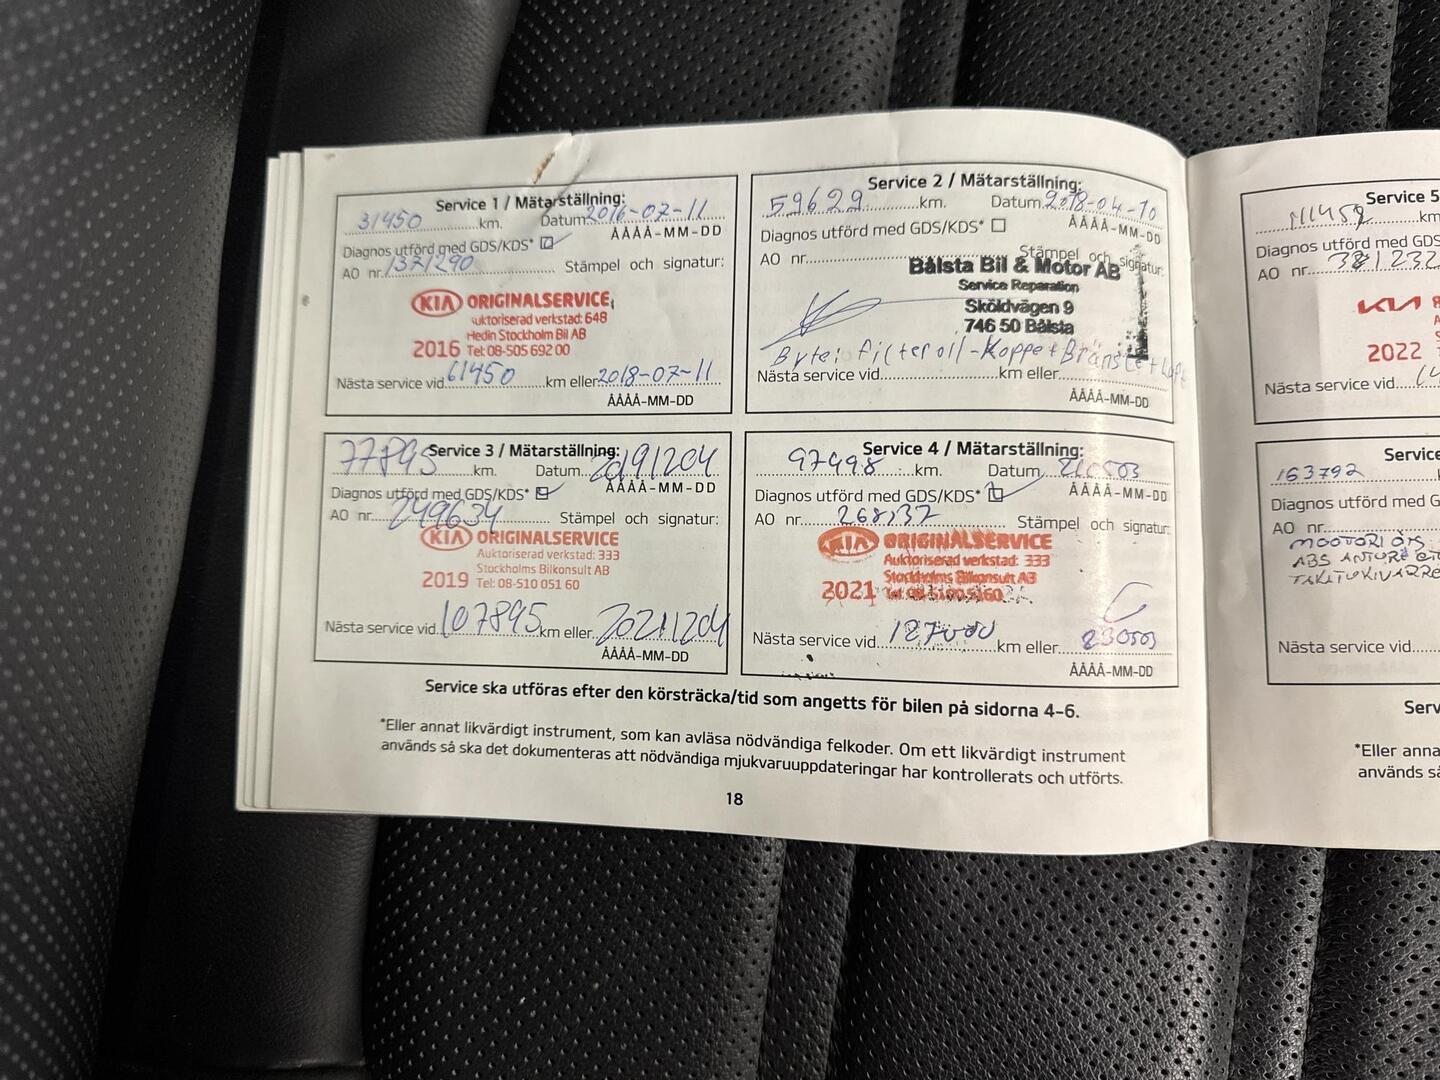 Service 1 / Mätarställning:
31450 km. Datum 2016-07-11
ÅÅÅÅ-MM-DD
Diagnos utförd med GDS/KDS*
AO nr. 1371290 Stämpel och signatur:
KIA ORIGINALSERVICE
Auktoriserad verkstad: 648
Hedin Stockholm Bil AB
2016 Tel: 08-505 692 00
Nästa service vid 61450 km eller 2018-07-11
ÅÅÅÅ-MM-DD
Service 2 / Mätarställning:
59629 km. Datum 2018-04-10
ÅÅÅÅ-MM-DD
Diagnos utförd med GDS/KDS*
AO nr. Stämpel och signatur:
Bålsta Bil & Motor AB
Service Reparation
Sköldvägen 9
746 50 Bålsta
Byte: filter oil-Koppe + Bränsle + Luft
Nästa service vid km eller
ÅÅÅÅ-MM-DD
Service 3 / Mätarställning:
77895 km. Datum 20191204
ÅÅÅÅ-MM-DD
Diagnos utförd med GDS/KDS*
AO nr. 249634 Stämpel och signatur:
KIA ORIGINALSERVICE
Auktoriserad verkstad: 333
Stockholms Bilkonsult AB
2019 Tel: 08-510 051 60
Nästa service vid 107895 km eller 20211204
ÅÅÅÅ-MM-DD
Service 4 / Mätarställning:
97498 km. Datum 210503
ÅÅÅÅ-MM-DD
Diagnos utförd med GDS/KDS*
AO nr. 268137 Stämpel och signatur:
KIA ORIGINALSERVICE
Auktoriserad verkstad: 333
Stockholms Bilkonsult AB
2021 Tel: 08-510 051 60
Nästa service vid 127000 km eller 230503
ÅÅÅÅ-MM-DD
Service ska utföras efter den körsträcka/tid som angetts för bilen på sidorna 4–6.
*Eller annat likvärdigt instrument, som kan avläsa nödvändiga felkoder. Om ett likvärdigt instrument
används så ska det dokumenteras att nödvändiga mjukvaruuppdateringar har kontrollerats och utförts.
18
Service 5
111452 km
Diagnos utförd med GD
AO nr. 381232
KIA
2022
Nästa service vid
Service
163792
Diagnos utförd med G
AO nr.
MOOTORIÖLJ
ABS ANTURI
TAKATUKIVARRE
Nästa service vid
Serv
*Eller anna
används så